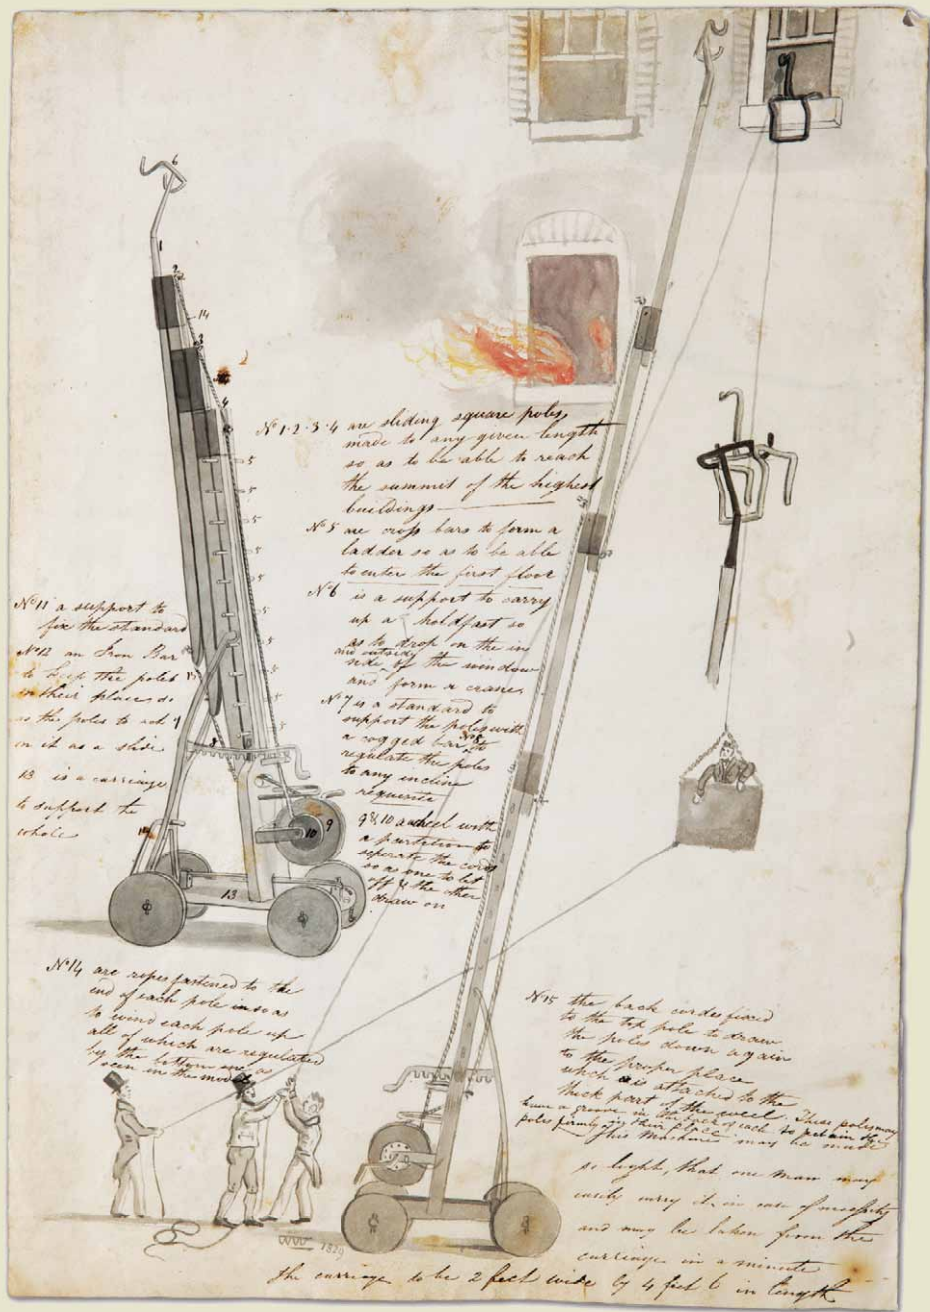 6
1
2
14
3
4
5
5
5
5
5
5
5
8
9
10
13
No 1·2·3·4 are sliding square poles,
made to any given length
so as to be able to reach
the summit of the highest
buildings
No 5 are cross bars to form a
ladder so as to be able
to enter the first floor
No 6 is a support to carry
up a holdfast so
as to drop on the in
and outside
side of the window
and form a crane,
No 7 is a standard to
support the poles with
a cogged bar No 8 to
regulate the poles
to any incline
requisite
9 & 10 a wheel with
a partition to
seperate the cords
so as one to let
off & the other
draw on
No 11 a support to
fix the standard
No 12 an Iron Bar
to keep the poles
in their places so
as the poles to act
in it as a slide
13 is a carriage
to support the
whole
No 14 are ropes fastened to the
end of each pole in so as
to wind each pole up
all of which are regulated
by the bottom one as
seen in the model
No 15 the back cord fixed
to the top pole to draw
the poles down again
to the proper place
which is attached to the
thick part of the weel. These poles may
have a groove in the back of each to
poles firmly in their place
This Machine may be made
so light, that one man may
easily carry it in case of
and may be taken from the
carriage in a minute
1829
the carriage to be 2 feet wide by 4 feet 6 in length